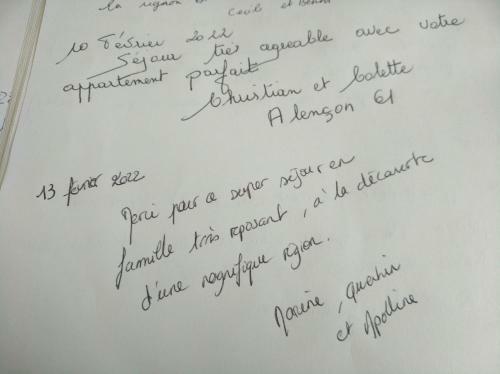 la région
Cecil et
10 Février 2022
Séjour très agréable avec votre
appartement parfait
Christian et Colette
Alençon 61
13 février 2022
Merci pour ce super séjour en
famille très reposant, à la découverte
d'une magnifique région.
Maxine, Quentin
et Apolline